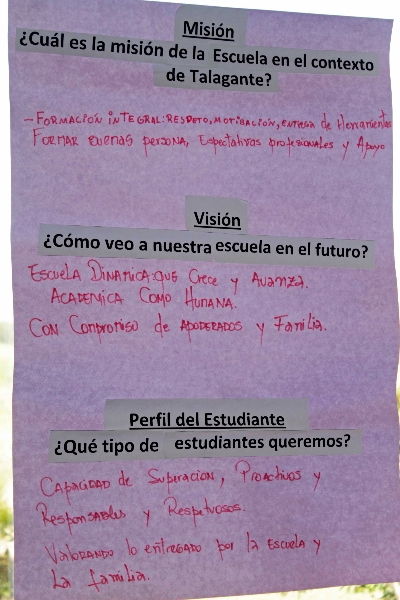 Misión
¿Cuál es la misión de la Escuela en el contexto
de Talagante?
- Formación integral: Respeto, motivación, entrega de Herramientas
Formar buenas persona, Expectativas profesionales y Apoyo
Visión
¿Cómo veo a nuestra escuela en el futuro?
Escuela Dinamica: que Crece y Avanza.
Academica Como Humana.
Con Compromiso de apoderados y Familia.
Perfil del Estudiante
¿Qué tipo de estudiantes queremos?
Capacidad de Superacion, Proactivos y
Responsables y Respetuosos.
Valorando lo entregado por la Escuela y
La familia.